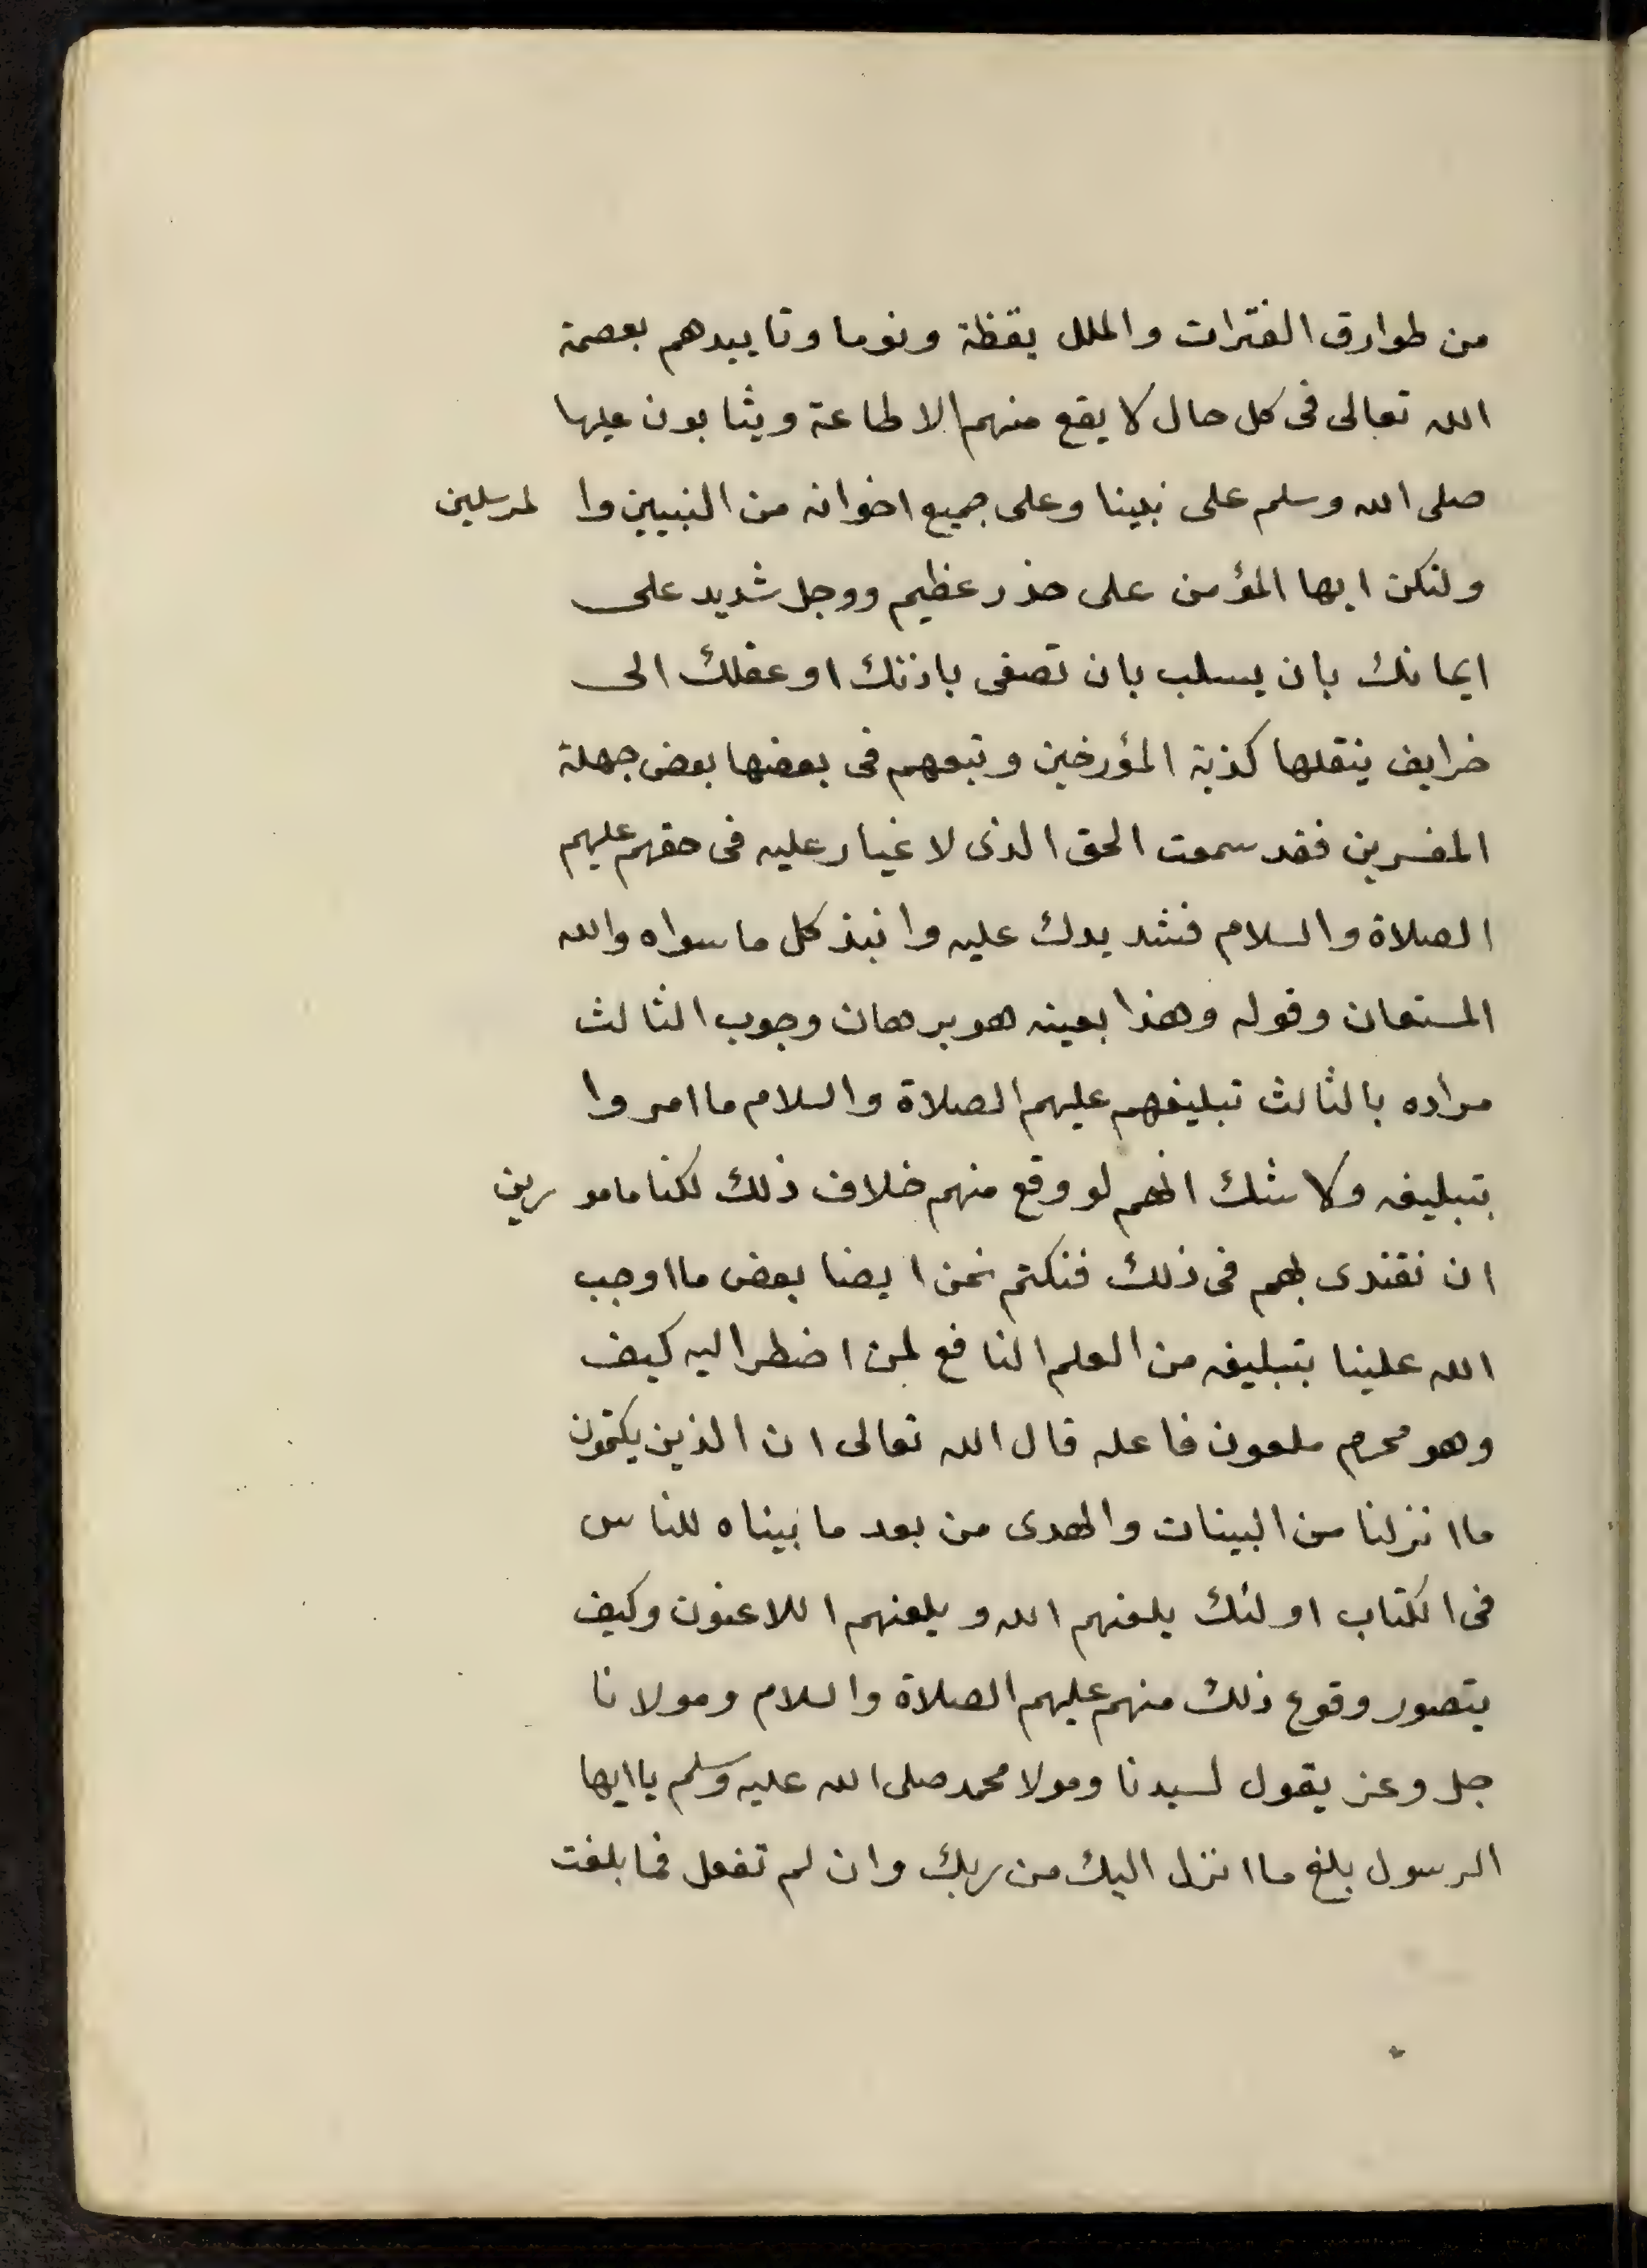 من طوارق الفترات والملل يقظة ونوما وتاييدهم بعصمة
الله تعالى فى كل حال لا يقع منهم الا طاعة ويثابون عليها
صلى الله وسلم على نبينا وعلى جميع اخوانه من النبيين والمرسلين
ولتكن ايها المؤمن على حذر عظيم ووجل شديد على
ايمانك بان يسلب بان تصغى باذنك او عقلك الى
خرايف ينقلها كذبة المؤرخين وتبعهم فى بعضها بعض جهلة
المفسرين فقد سمعت الحق الذى لا غبار عليه فى حقهم عليهم
الصلاة والسلام فشد يدك عليه وانبذ كل ما سواه والله
المستعان وقوله وهذا بعينه هو برهان وجوب الثالث
مراده بالثالث تبليغهم عليهم الصلاة والسلام ما امروا
بتبليغه ولا شك انهم لو وقع منهم خلاف ذلك لكنا مامورين
ان نقتدى بهم فى ذلك فنكتم نحن ايضا بعض ما اوجب
الله علينا بتبليغه من العلم النافع لمن اضطر اليه كيف
وهو محرم ملعون فاعله قال الله تعالى ان الذين يكتمون
ما انزلنا من البينات والهدى من بعد ما بيناه للناس
فى الكتاب اولئك يلعنهم الله ويلعنهم اللاعنون وكيف
يتصور وقوع ذلك منهم عليهم الصلاة والسلام ومولانا
جل وعز يقول لسيدنا ومولا محمد صلى الله عليه وسلم يا ايها
الرسول بلغ ما انزل اليك من ربك وان لم تفعل فما بلغت